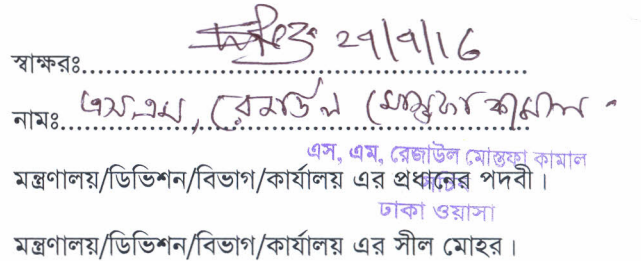 স্বাক্ষরঃ........ 27/7/16
নামঃ........ এস.এম, রেজাউল মোস্তফা কামাল
এস, এম, রেজাউল মোস্তফা কামাল
মন্ত্রণালয়/ডিভিশন/বিভাগ/কার্যালয় এর প্রধানের পদবী।
ঢাকা ওয়াসা
মন্ত্রণালয়/ডিভিশন/বিভাগ/কার্যালয় এর সীল মোহর।